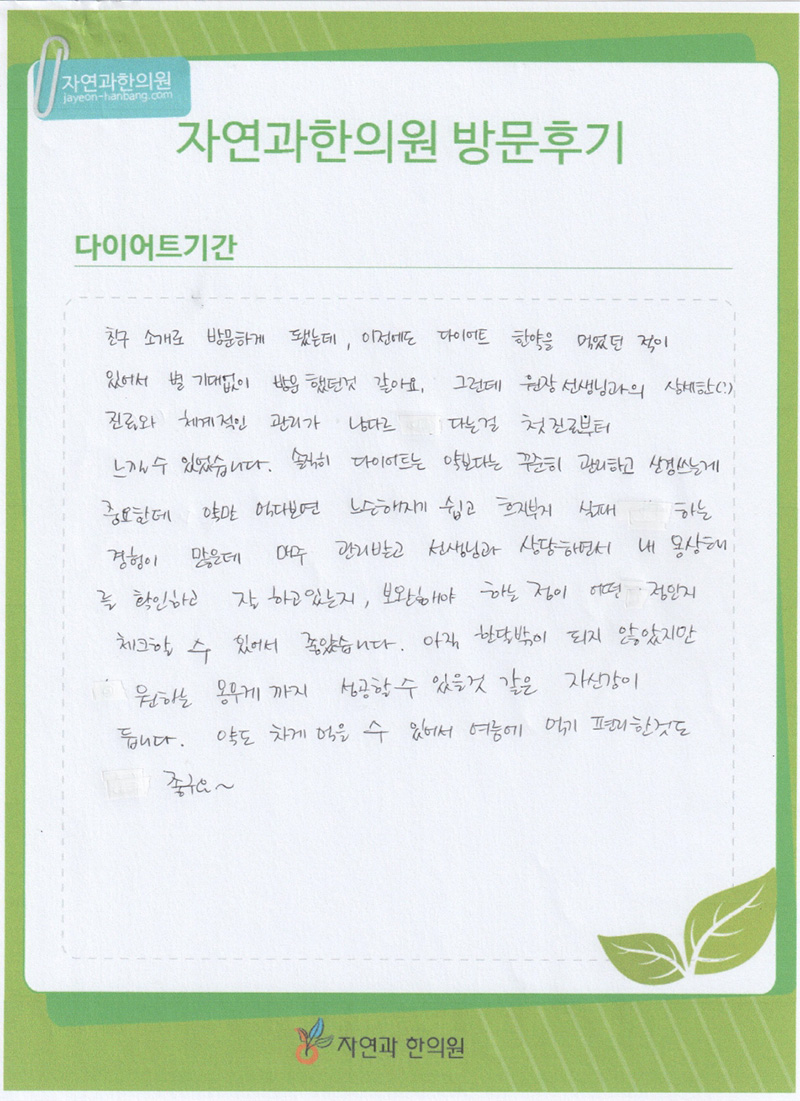 자연과한의원
jayeon-hanbang.com
자연과한의원 방문후기
다이어트기간
친구 소개로 방문하게 됐는데, 이전에도 다이어트 한약을 먹었던 적이
있어서 별 기대없이 방문 했던것 같아요. 그런데 원장선생님과의 상세한(!)
진료와 체계적인 관리가 남다르 다는걸 첫진료부터
느낄 수 있었습니다. 솔직히 다이어트는 약보다는 꾸준히 관리하고 신경쓰는게
중요한데 약만 먹다보면 느슨해지기 쉽고 흐지부지 실패 하는
경험이 많은데 매주 관리받고 선생님과 상담하면서 내 몸상태
를 확인하고 잘 하고있는지, 보완해야 하는 점이 어떤 점인지
체크할 수 있어서 좋았습니다. 아직 한달밖이 되지 않았지만
원하는 몸무게 까지 성공할 수 있을것 같은 자신감이
듭니다. 약도 차게 먹을 수 있어서 여름에 먹기 편리한것도
좋구요~
자연과 한의원